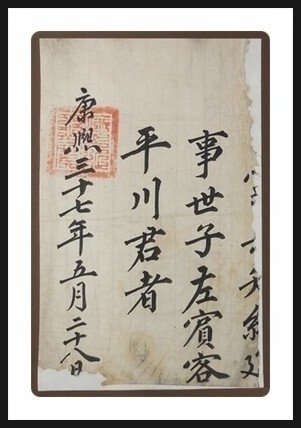 事世子左賓客
平川君者
康熙三十七年五月二十八日